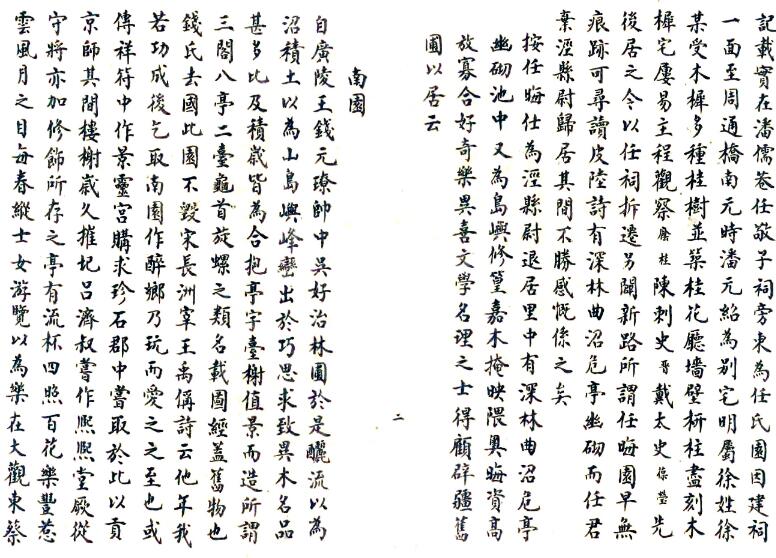 記載實在潘儒巷任敬子祠旁東為任氏園因建祠
一面至周通橋南元時潘元紹為別宅明屬徐姓徐
某受木樨多種桂樹並築桂花廳墻壁枡柱盡刻木
樨宅屢易主程觀察庭桂陳刺史晉戴太史保瑩先
後居之今以任祠拆遷另闢新路所謂任晦園早無
痕跡可尋讀皮陸詩有深林曲沼危亭幽砌而任君
棄涇縣尉歸居其間不勝感慨係之矣
按任晦仕為涇縣尉退居里中有深林曲沼危亭
幽砌池中又為島嶼修篁嘉木掩映隈奧晦資高
放寡合好奇樂異喜文學名理之士得顧辟疆舊
圃以居云
二
南園
自廣陵王錢元璙帥中吳好治林圃於是釃流以為
沼積土以為山島嶼峰巒出於巧思求致異木名品
甚多比及積歲皆為合抱亭宇臺榭值景而造所謂
三閣八亭二臺龜首旋螺之類名載圖經蓋舊物也
錢氏去國此園不毀宋長洲宰王禹偁詩云他年我
若功成後乞取南園作醉鄉乃玩而愛之之至也或
傳祥符中作景靈宮購求珍石郡中嘗取於此以貢
京師其間樓榭歲久摧圮呂濟叔嘗作熙熙堂厥從
守將亦加修飾所存之亭有流杯四照百花樂豐惹
雲風月之目每春縱士女游覽以為樂在大觀東蔡